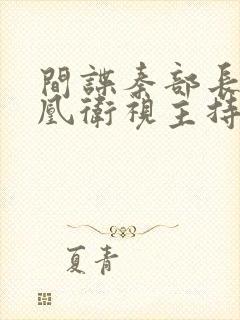 間諜秦部長
凰衛視主持
夏青